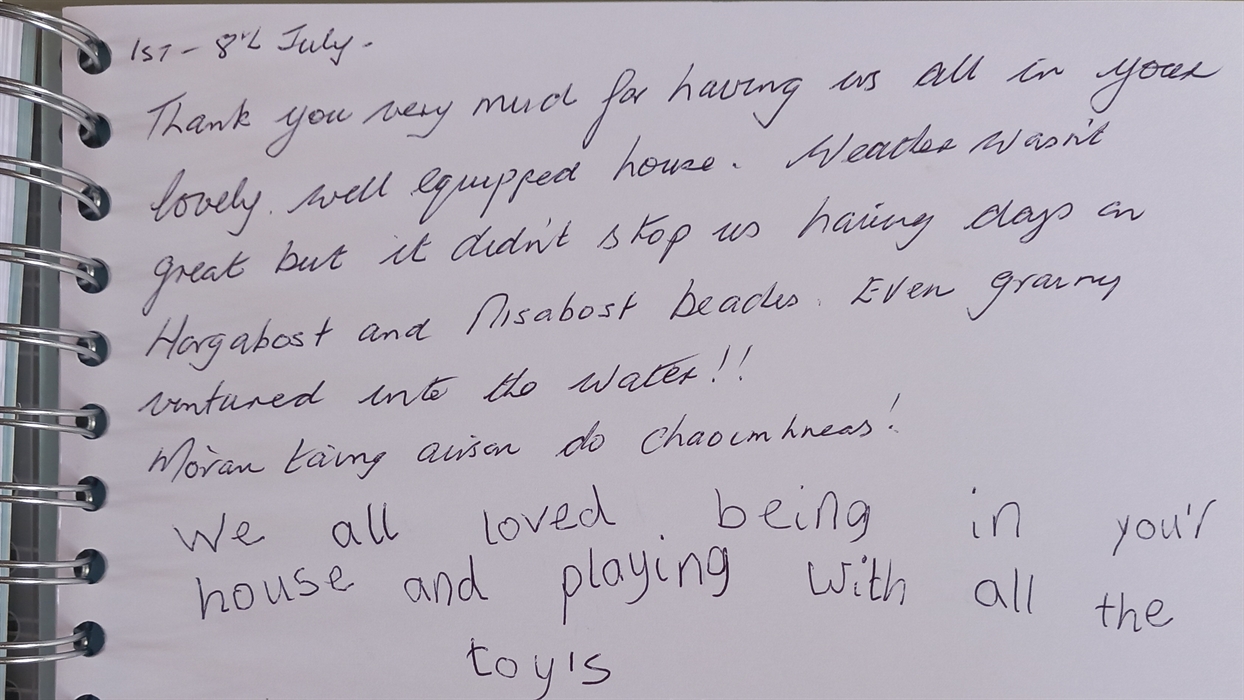 1st - 8th July.
Thank you very much for having us all in your
lovely. well equipped house. Weather wasn't
great but it didn't stop us having days on
Horgabost and Nisabost beaches. Even granny
ventured into the water!!
Mòran taing airson do chaoimhneas!
We all loved being in you'r
house and playing with all the
toy's